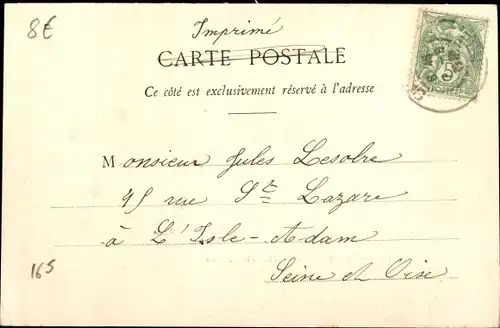 8€
Imprimé
CARTE POSTALE
5
Ce côté est exclusivement réservé à l'adresse
Monsieur Jules Lesobre
45 rue St Lazare
à L'Isle-Adam
Seine et Oise
165